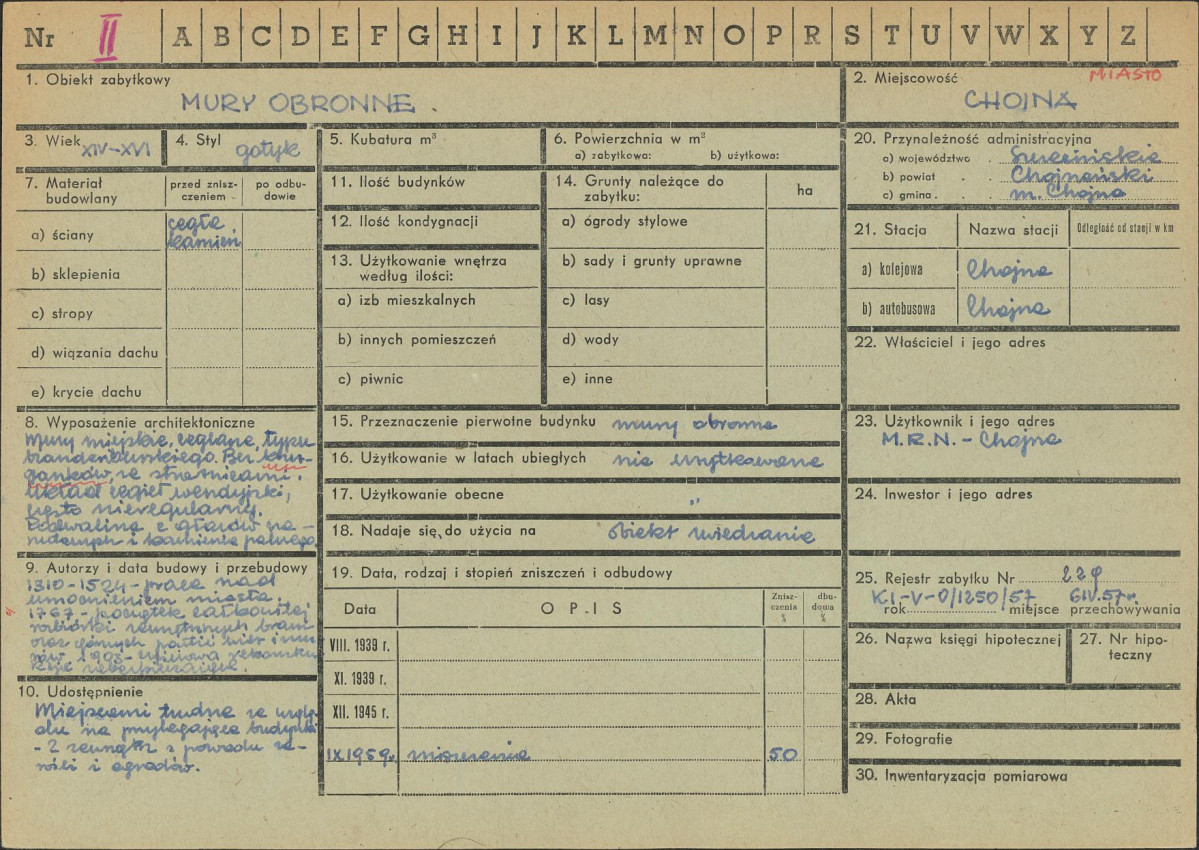 Nr II A B C D E F G H I J K L M N O P R S T U V W X Y Z
1. Obiekt zabytkowy
MURY OBRONNE.
2. Miejscowość MIASTO
CHOJNA
3. Wiek XIV-XVI
4. Styl gotyk
5. Kubatura m³
6. Powierzchnia w m²
a) zabytkowa: b) użytkowa:
7. Materiał budowlany
przed zniszczeniem
po odbudowie
a) ściany cegła, kamień
b) sklepienia
c) stropy
d) wiązania dachu
e) krycie dachu
11. Ilość budynków
12. Ilość kondygnacji
13. Użytkowanie wnętrza
według ilości:
a) izb mieszkalnych
b) innych pomieszczeń
c) piwnic
14. Grunty należące do
zabytku:
ha
a) ogrody stylowe
b) sady i grunty uprawne
c) lasy
d) wody
e) inne
20. Przynależność administracyjna
a) województwo . Szczecińskie
b) powiat . . Chojnański
c) gmina . . . m. Chojna
21. Stacja Nazwa stacji Odległość od stacji w km
a) kolejowa Chojna
b) autobusowa Chojna
22. Właściciel i jego adres
8. Wyposażenie architektoniczne
Mury miejskie, ceglane, typu
brandenburskiego. Bez kur-
ganków, ze strażnicami.
Układ cegieł wendyjski,
często nieregularny.
Podwalina z głazów na-
rzutowych i kamienia polnego.
9. Autorzy i data budowy i przebudowy
1310-1524 - prace nad
umocnieniem miasta.
1767 - początek całkowitej
rozbiórki zewnętrznych bram
oraz górnych partii wież i mu-
rów. 1903-
10. Udostępnienie
Miejscami trudne ze wzglę-
du na przylegające budynki
- z zewnątrz z powodu za-
rośli i ogrodów.
15. Przeznaczenie pierwotne budynku mury obronne
16. Użytkowanie w latach ubiegłych nie użytkowane
17. Użytkowanie obecne "
18. Nadaje się do użycia na obiekt zwiedzania
19. Data, rodzaj i stopień zniszczeń i odbudowy
Data OPIS Zniszczenia % dbudowa %
VIII. 1939 r.
XI. 1939 r.
XII. 1945 r.
IX 1959 r. niszczenie 50
23. Użytkownik i jego adres
M.R.N. - Chojna
24. Inwestor i jego adres
25. Rejestr zabytku Nr 229
K.I-V-0/1250/57 6IV.57r.
rok miejsce przechowywania
26. Nazwa księgi hipotecznej
27. Nr hipoteczny
28. Akta
29. Fotografie
30. Inwentaryzacja pomiarowa